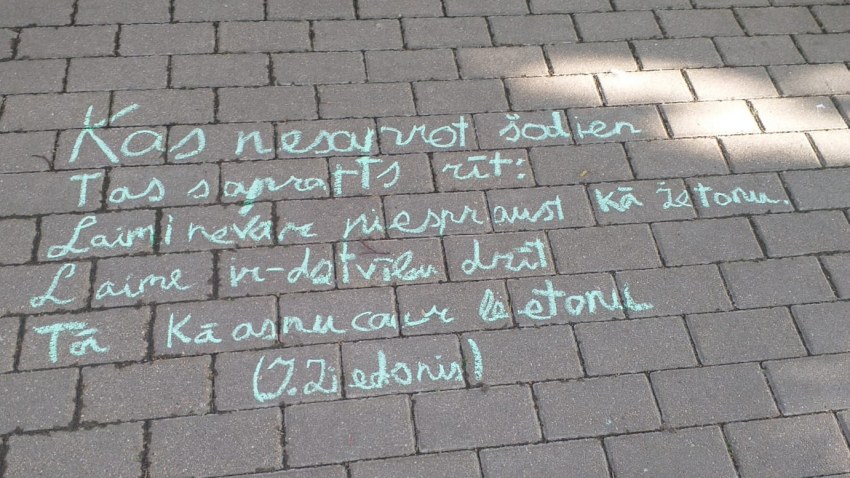 Kas nesaprot šodien
Tas sapratīs rīt:
Laimi nevar piespraust kā žetonu.
Laime ir dotvību drīt
Tā kā asnu caur betonu
(I. Ziedonis)